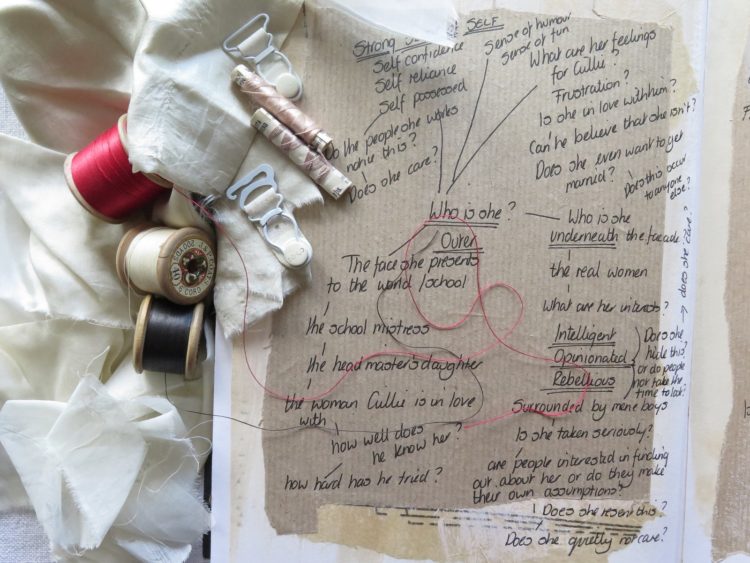 Strong
Self confidence
Self reliance
Self possessed
Do the people she works
notice this?
Does she care?
SELF
Sense of humour
Sense of fun
What are her feelings
for Cullu?
Frustration?
Is she in love with him?
Can he believe that she isn't?
Does she even want to get
married?
Does this occur
to anyone
else?
Who is she?
Outer
The face she presents
to the world / school
the school mistress
the head master's daughter
the woman Cullu is in love
with
how well does
he know her?
how hard has he tried?
Who is she
underneath the facade
the real women
What are her interests?
→ does she care?
Intelligent
Opinionated
Rebellious
Does she
hide this?
or do people
not take the
time to look?
Surrounded by mere boys
Is she taken seriously?
are people interested in finding
out about her or do they make
their own assumptions?
Does she resent this?
Does she quietly not care?